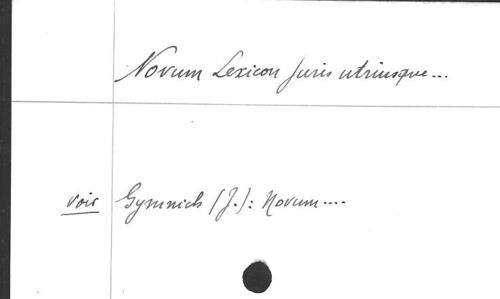 Novum Lexicon Juris utriusque...
voir Gymnich (J.): Novum....